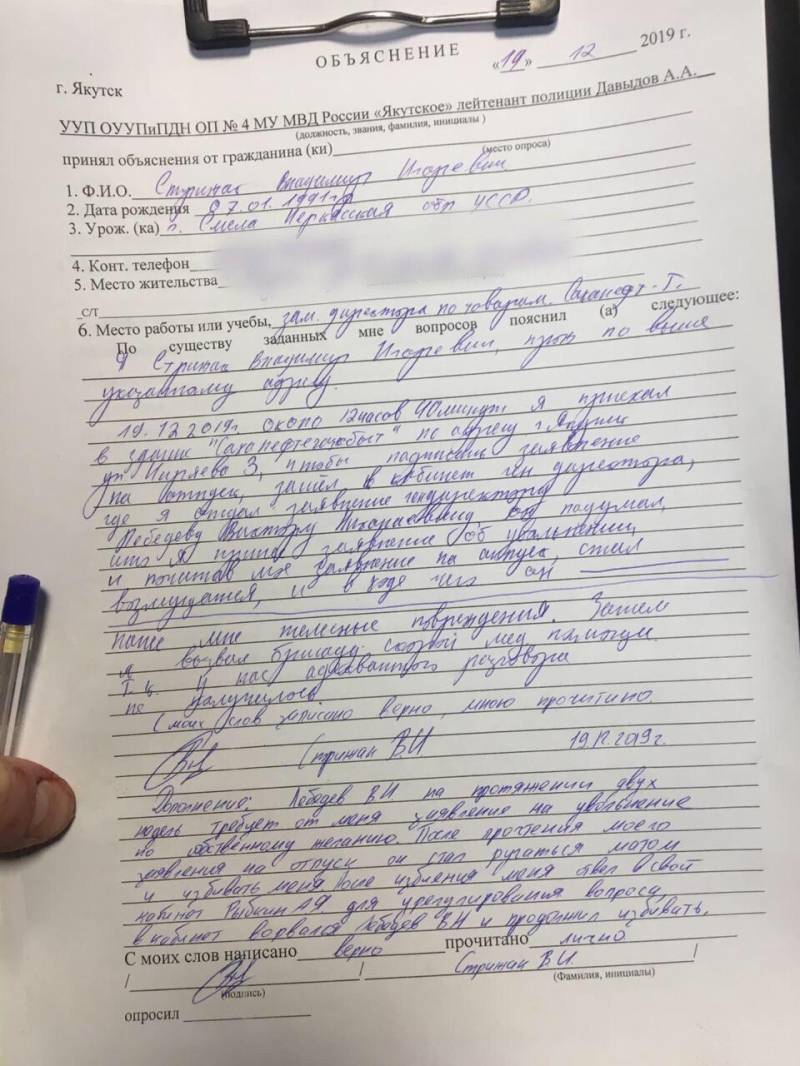 ОБЪЯСНЕНИЕ
«19» 12 2019 г.
г. Якутск
УУП ОУУПиПДН ОП № 4 МУ МВД России «Якутское» лейтенант полиции Давыдов А.А.
(должность, звания, фамилия, инициалы )
принял объяснения от гражданина (ки)
(место опроса)
1. Ф.И.О. Стрижак Владимир Игоревич
2. Дата рождения 07.01.1991г.р
3. Урож. (ка) г. Смела Черкасская обл УССР.
4. Конт. телефон
5. Место жительства
с/т
6. Место работы или учебы, зам. директора по товарн. Саханефт-Т.
По существу заданных мне вопросов пояснил (а) следующее:
Я Стрижак Владимир Игоревич, прож по выше
указанному адресу.
19.12.2019г. около 12часов 40минут я приехал
в здание "Саханефтегазсбыт" по адресу г. Якутск
ул Чиряева 3, чтобы подписать заявление
на отпуск, зашёл в кабинет ген директора,
где я отдал заявление гендиректору
Лебедеву Виктору он подумал,
что я принес заявление об увольнении,
и почитав мое заявление на отпуск, стал
возмущатся, и в ходе чего он
нанес мне телесные повреждения. Затем
я вызвал бригаду скорой мед помощи.
Т.к. у нас адекватного разговора
не получилось.
С моих слов записано верно, мною прочитано.
Стрижак В.И 19.12.2019г.
Дополнение: Лебедев ВН на протяжении двух
недель требует от меня заявление на увольнение
по собственному желанию. После прочтения моего
заявления на отпуск он стал ругаться матом
и избивать меня. После избиения меня отвел в свой
кабинет Рыбкин АФ. для урегулирования вопроса,
в кабинет ворвался Лебедев ВН и продолжил избивать.
С моих слов написано верно прочитано лично
/ / Стрижак В.И. /
(подпись) (Фамилия, инициалы)
опросил